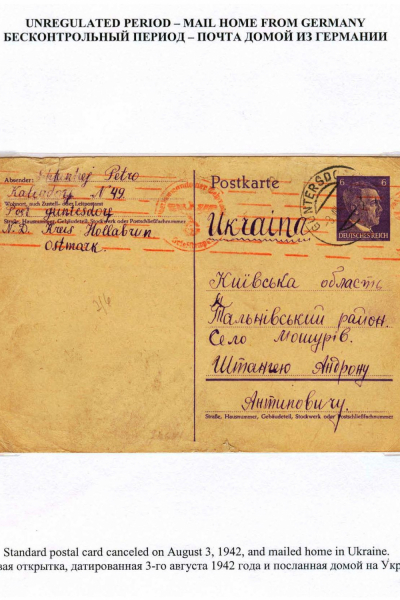 UNREGULATED PERIOD – MAIL HOME FROM GERMANY
БЕСКОНТРОЛЬНЫЙ ПЕРИОД – ПОЧТА ДОМОЙ ИЗ ГЕРМАНИИ
Absender: Petro
N 49.
Wohnort, auch Zustell- oder Leitpostamt
Post Guntersdorf
Straße, Hausnummer, Gebäudeteil, Stockwerk oder Postschließfachnummer
N.D. Kreis Hollabrun
Ostmark.
Postkarte
GUNTERSDO
6 6
DEUTSCHES REICH
Ukraina
Київська область
Тальнівський район.
Село Мошурів.
Штангею Андрону
Антиповичу.
Straße, Hausnummer, Gebäudeteil, Stockwerk oder Postschließfachnummer
Standard postal card canceled on August 3, 1942, and mailed home in Ukraine.
вая открытка, датированная 3-го августа 1942 года и посланная домой на Укр